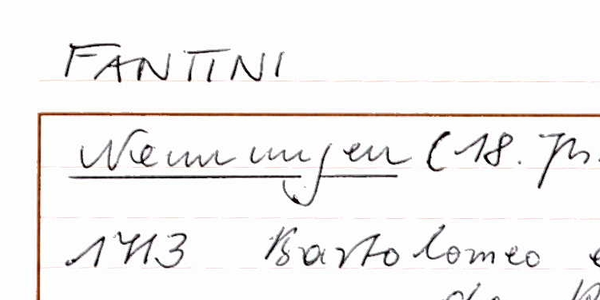 FANTINI
Nennungen (18. Jh.
1713 Bartolomeo
de